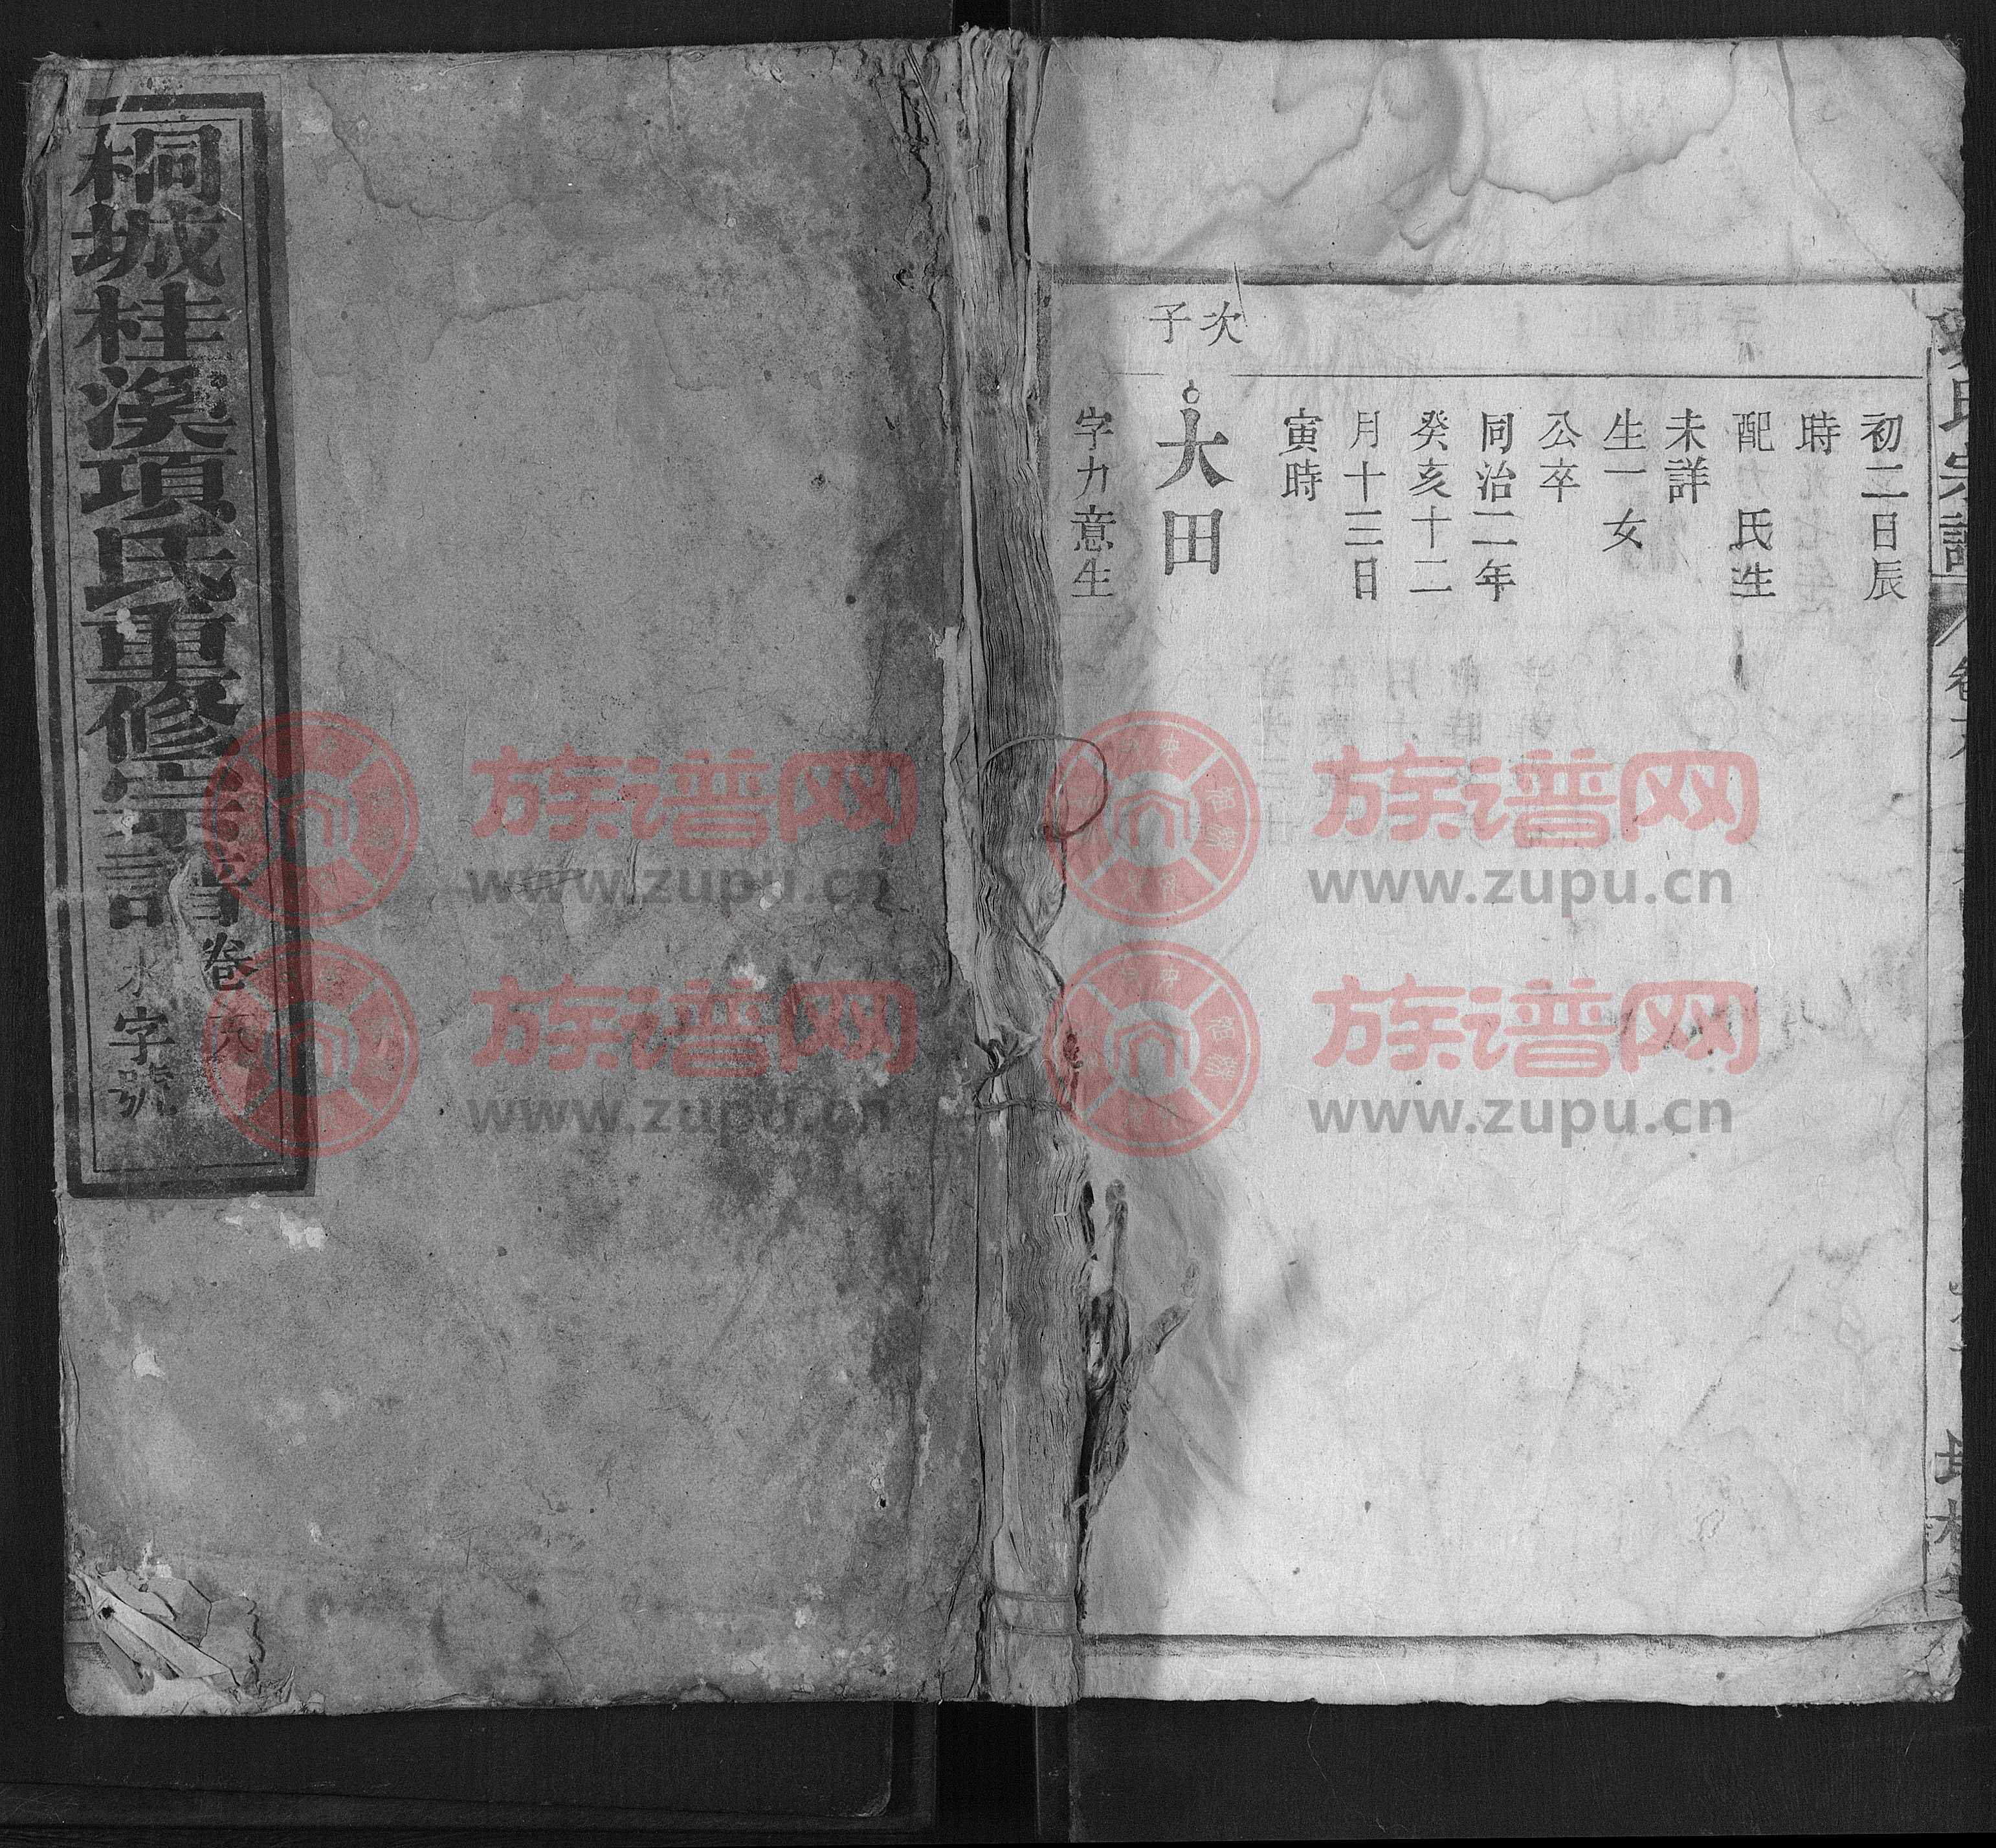 桐城桂溪項氏重修宗譜
卷六
水字號
次子
初二日辰
時
配 氏生
未詳
生一女
公卒
同治二年
癸亥十二
月十三日
寅時
大田
字力意生
族谱网
www.zupu.cn
族谱网
www.zupu.cn
族谱网
www.zupu.cn
族谱网
www.zupu.cn